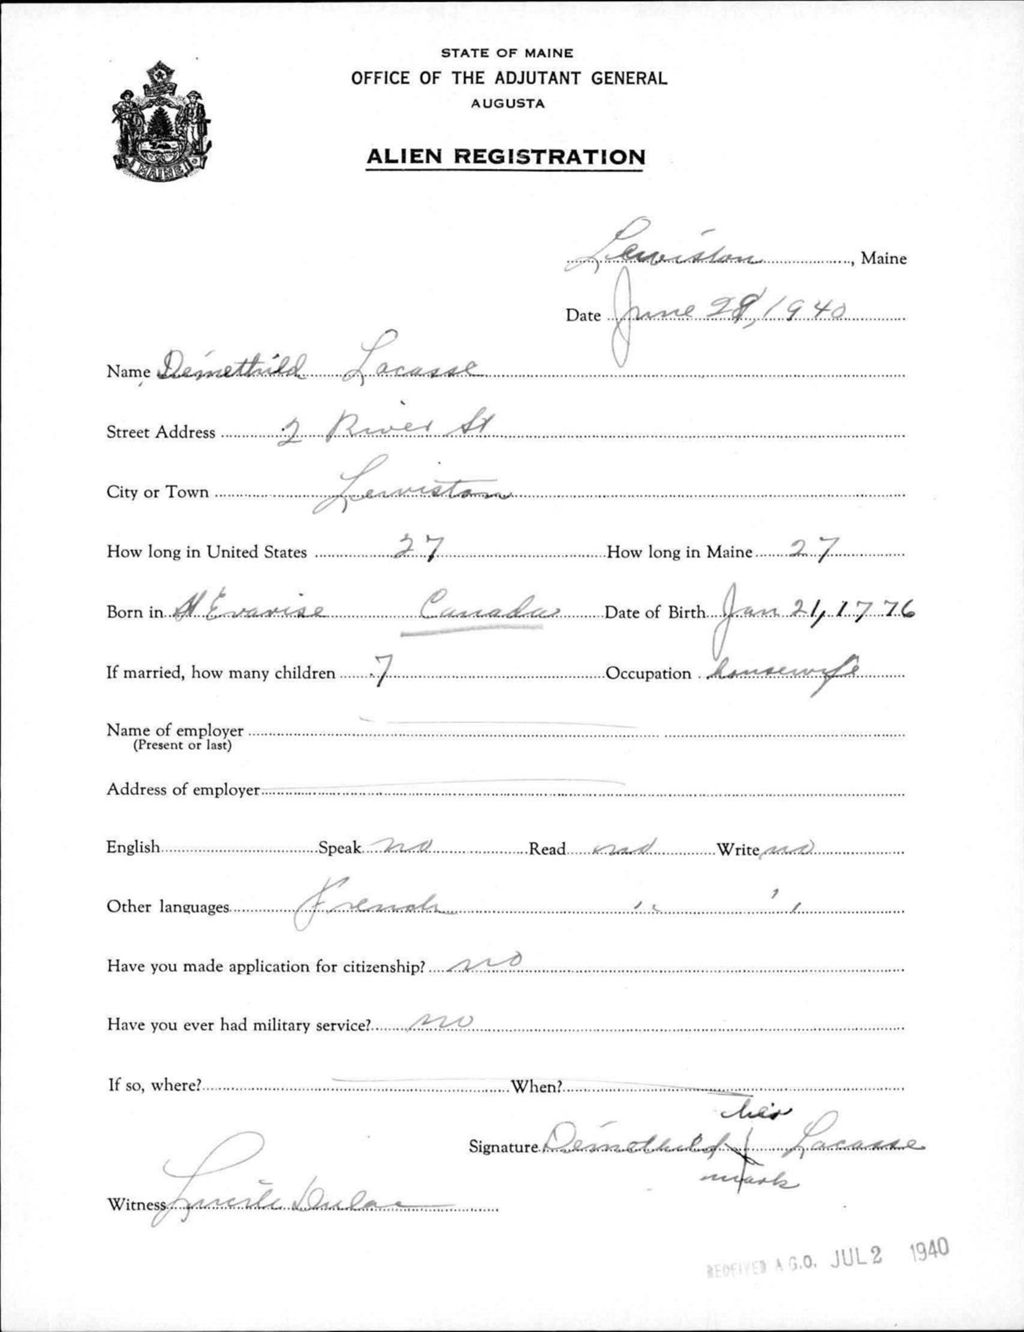 STATE OF MAINE
OFFICE OF THE ADJUTANT GENERAL
AUGUSTA
ALIEN REGISTRATION
MAINE
Lewiston, Maine
Date June 28, 1940
Name Demethild Lacasse
Street Address 2 River St
City or Town Lewiston
How long in United States 27 How long in Maine 27
Born in St Evariste Canada Date of Birth Jan 21, 1776
If married, how many children 7 Occupation housewife
Name of employer
(Present or last)
Address of employer
English Speak no Read no Write no
Other languages French " "
Have you made application for citizenship? no
Have you ever had military service? no
If so, where? When?
her
Signature Demethild X Lacasse
mark
Witness Lucile Dulac
RECEIVED A.G.O. JUL 2 1940